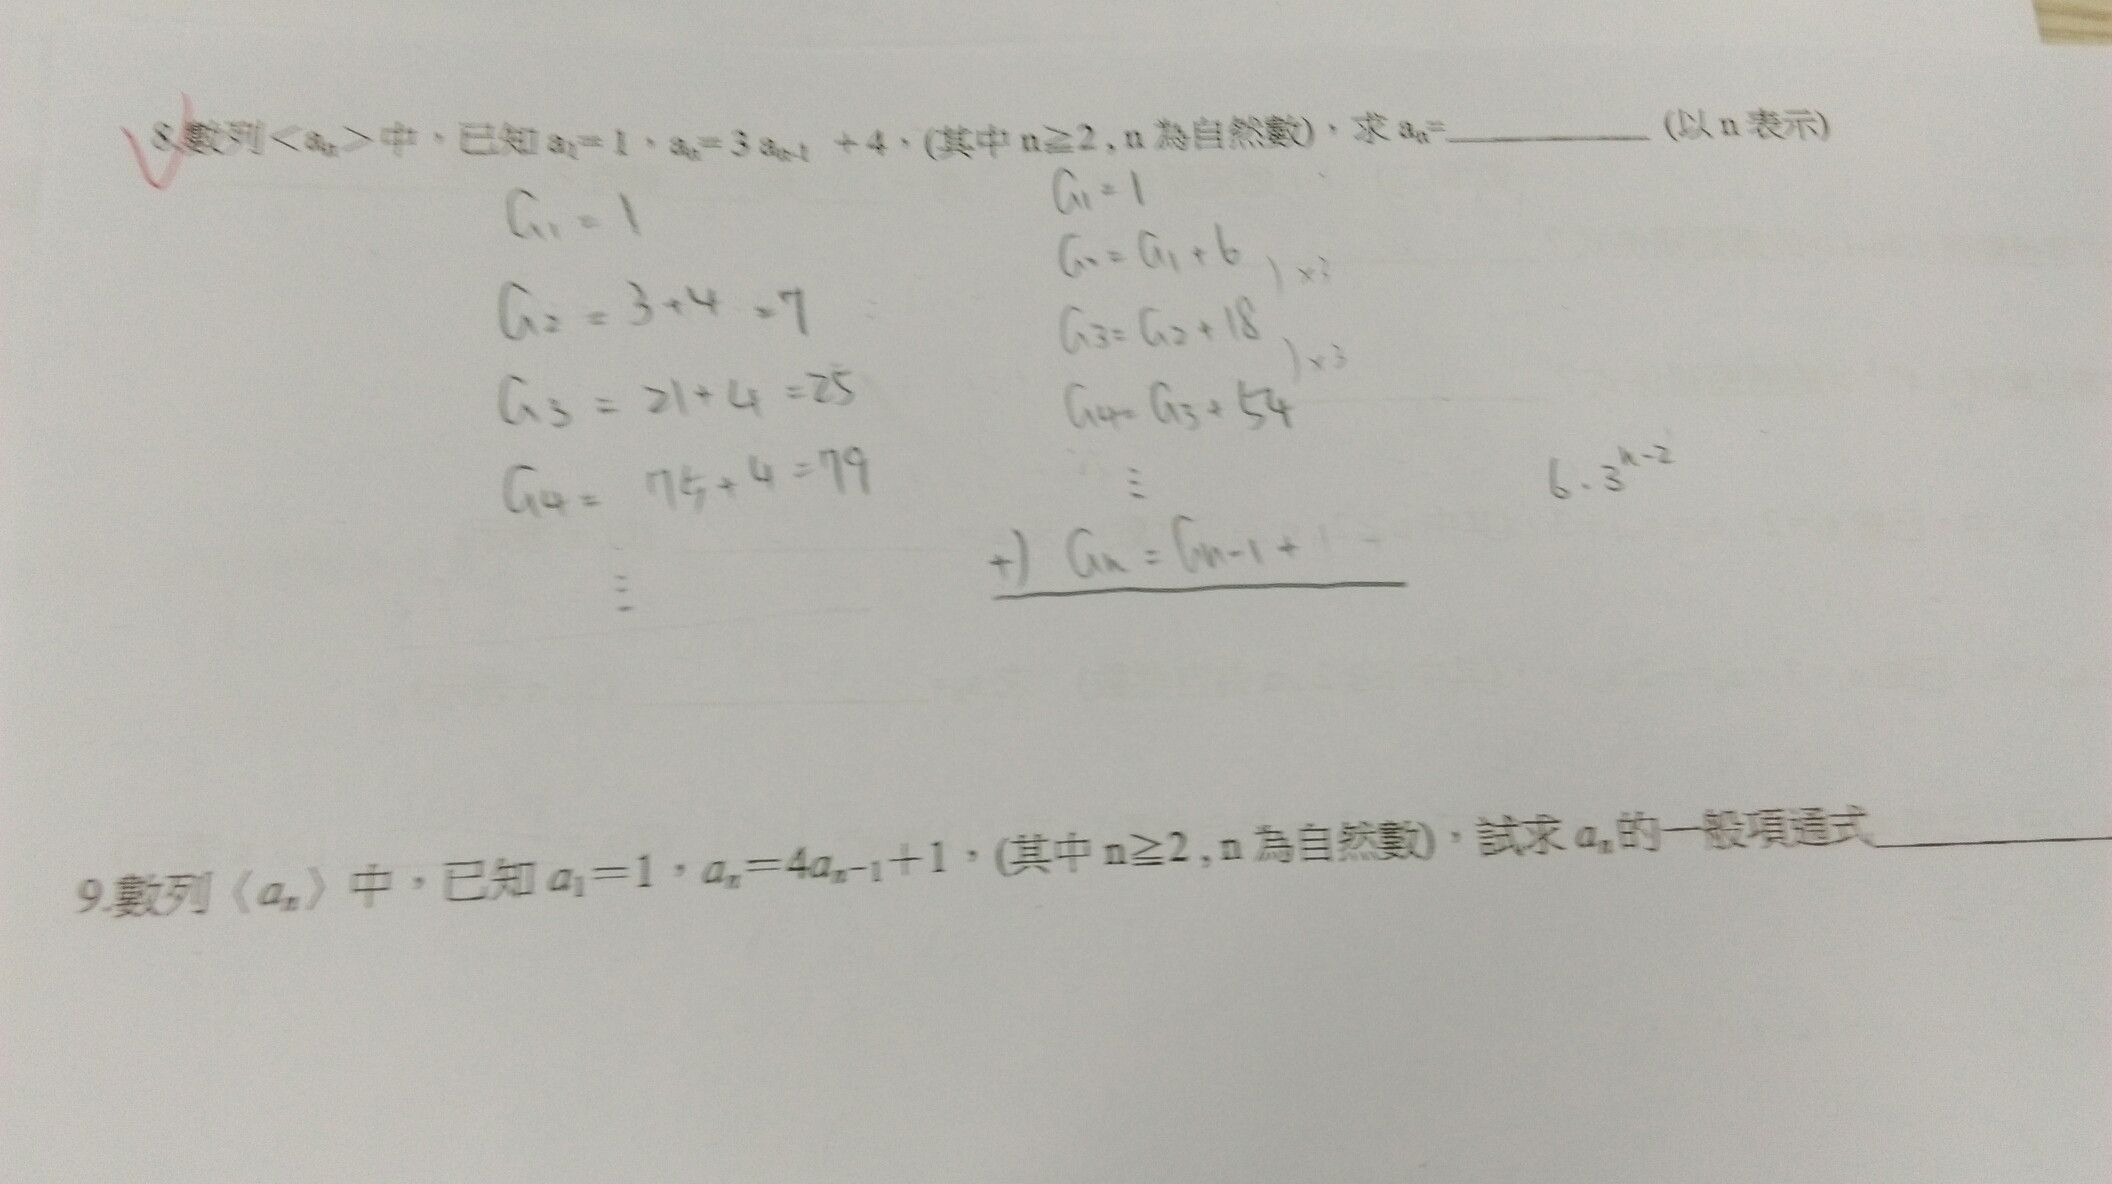 8.數列＜aₙ＞中，已知 a₁=1，aₙ=3 aₙ₋₁ +4，(其中 n≧2 , n 為自然數)，求 aₙ=__________ (以 n 表示)
a₁ = 1
a₂ = 3+4 = 7
a₃ = 21+4 = 25
a₄ = 75+4 = 79
⋮
a₁ = 1
a₂ = a₁ + 6
)×3
a₃ = a₂ + 18
)×3
a₄ = a₃ + 54
⋮
+) aₙ = aₙ₋₁ +
6·3ⁿ⁻²
9.數列〈aₙ〉中，已知 a₁＝1，aₙ＝4aₙ₋₁＋1，(其中 n≧2 , n 為自然數)，試求 aₙ的一般項通式__________